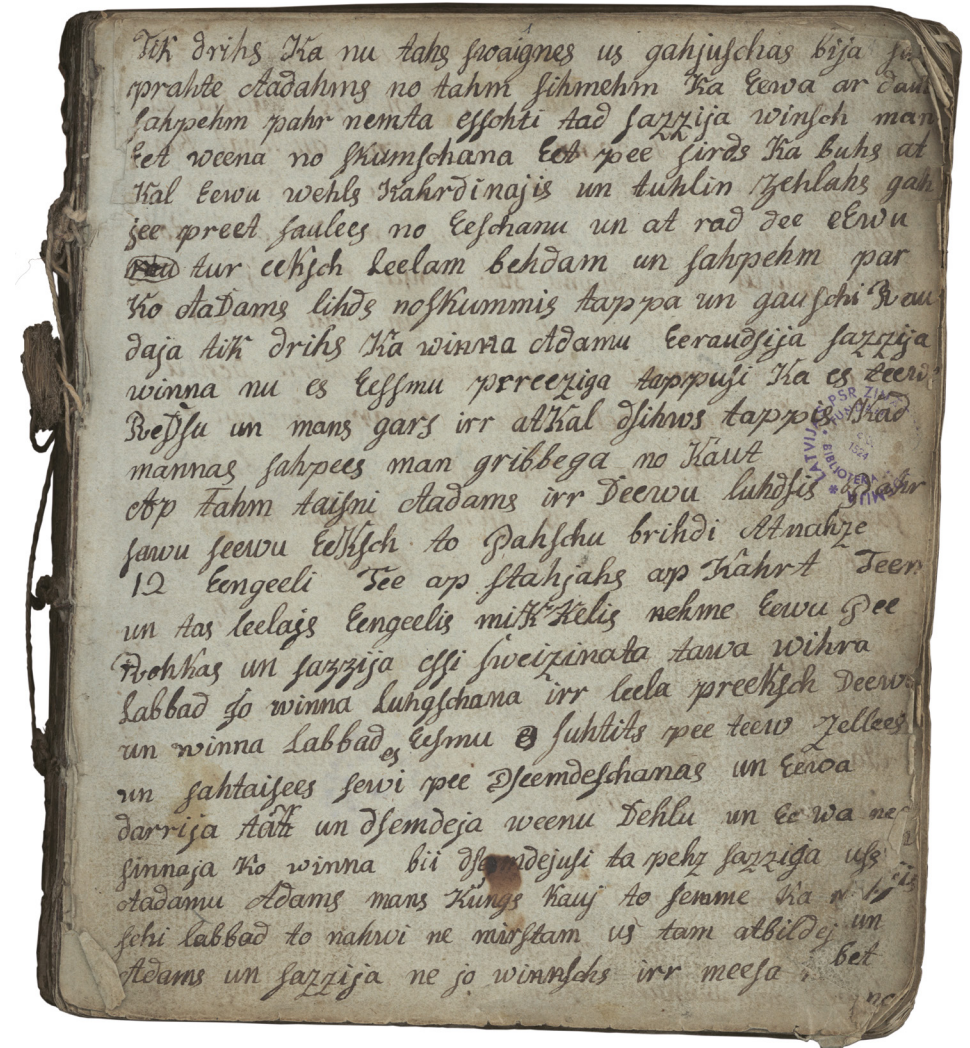 Tik drihs Ka nu tahs swaignes us gahjuschas bija
prahte Aadahms no tahm sihmehm Ka Eewa ar dau
sahpehm pahr nemta esschti tad sazzija winsch man
Eet weena no skumschana Eet pee sirds Ka buhs at
Kal Eewu wehls Kahrdinajis un tuhlin zehlahs gah
jee preet saulees no Eeschanu un at rad dee eEwu
tur eeksch leelam behdam un sahpehm par
Ko AaDams lihds noskummis tappa un gauschi Rau
daja tik drihs Ka winna Adamu Eeraudsija sazzija
winna nu es Eessmu prreeziga tappusi Ka es teew
ReDsu un mans gars irr atKal dsihws tappis Kad
mannas sahpees man gribbega no Kaut
Ap tahm taisni Aadams irr Deewu luhdsis pahr
sawu seewu EeKsch to Pahschu brihdi Atnahze
12 Eengeeli Tee ap stahjahs ap Kahrt Teer
un tas leelajs Eengeelis miKKelis nehme Eewu Pee
Rohkas un sazzija essi sweizinata tawa wihra
labbad jo winna luhgschana irr leela preeksch Deewa
un winna labbad es Eesmu suhtits pee teew zellees
un sahtaisees sewi pee Dseemdeschanas un Eewa
darrija tatt un dsemdeja weenu Dehlu un Ee wa ne
sinnaja Ko winna bii dsemdejusi ta pehz sazziga uss
Aadamu Adams mans Kungs Kauj to semme Ka
schi labbad to nahwi ne mirstam us tam atbildej un
Adams un sazzija ne jo winnschs irr meesa bet
ne
LATVIJAS PSR ZIN
BIBLIOTEKA
1524